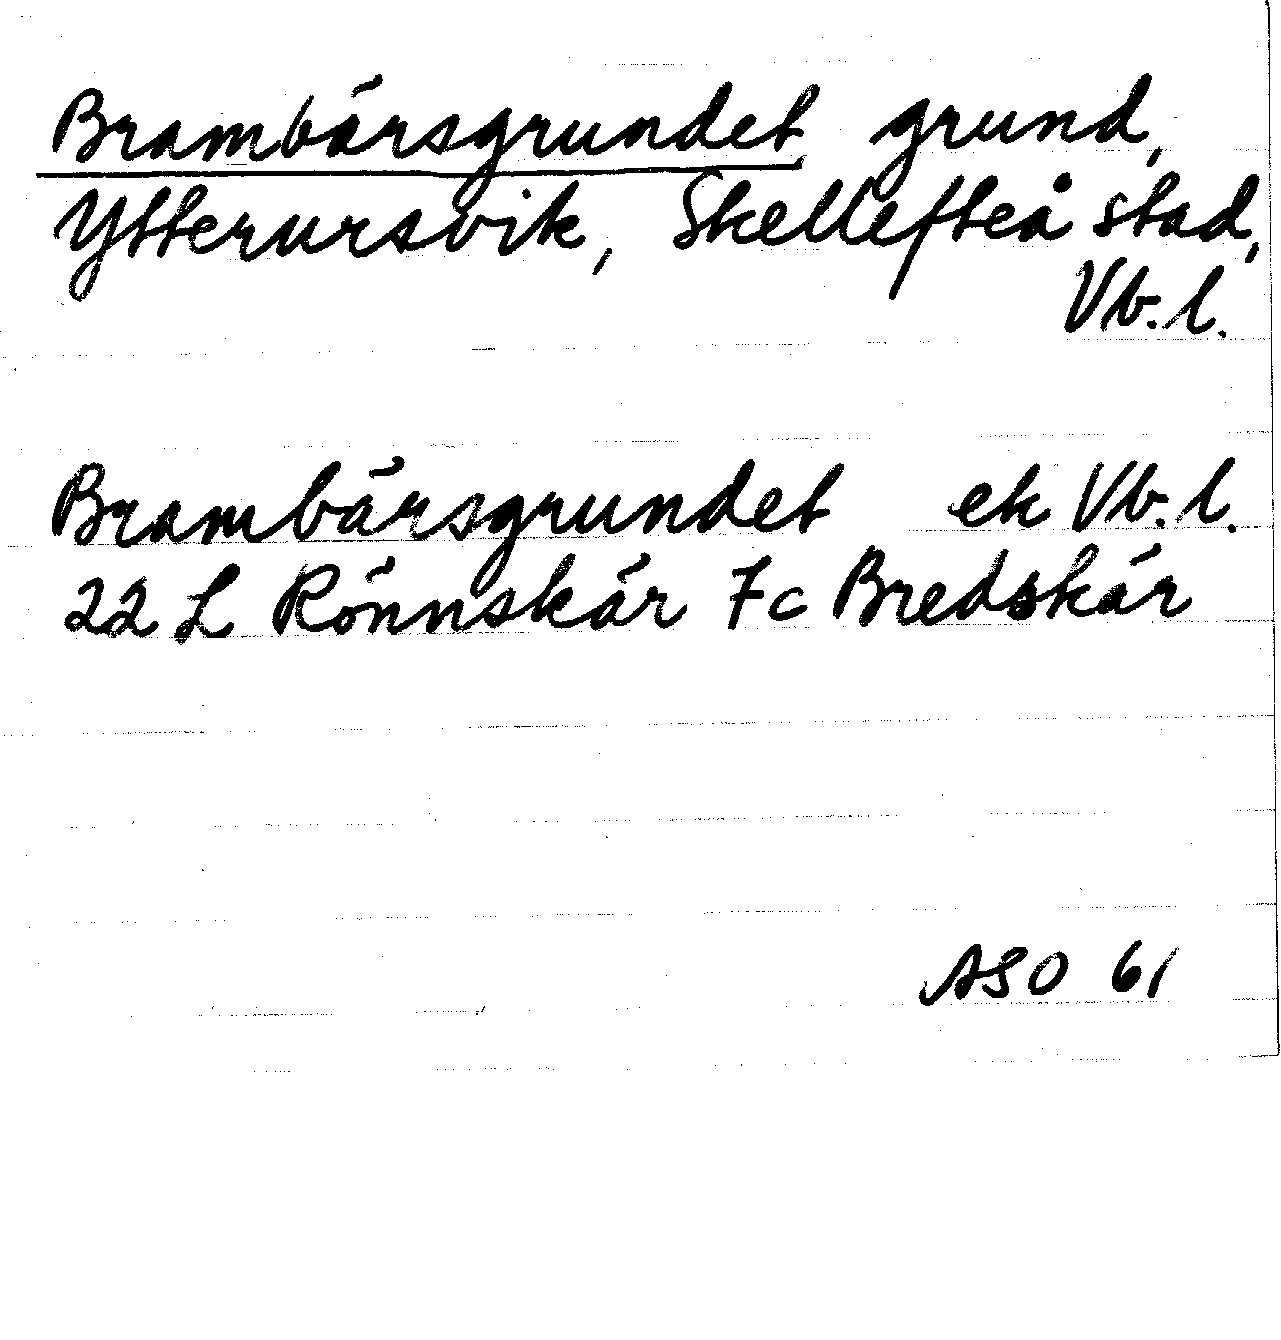 Brambärsgrundet, grund,
Ytterursvik, Skellefteå stad,
Vb. l.
Brambärsgrundet ek Vb. l.
22 L Rönnskär 7c Bredskär
ASO 61